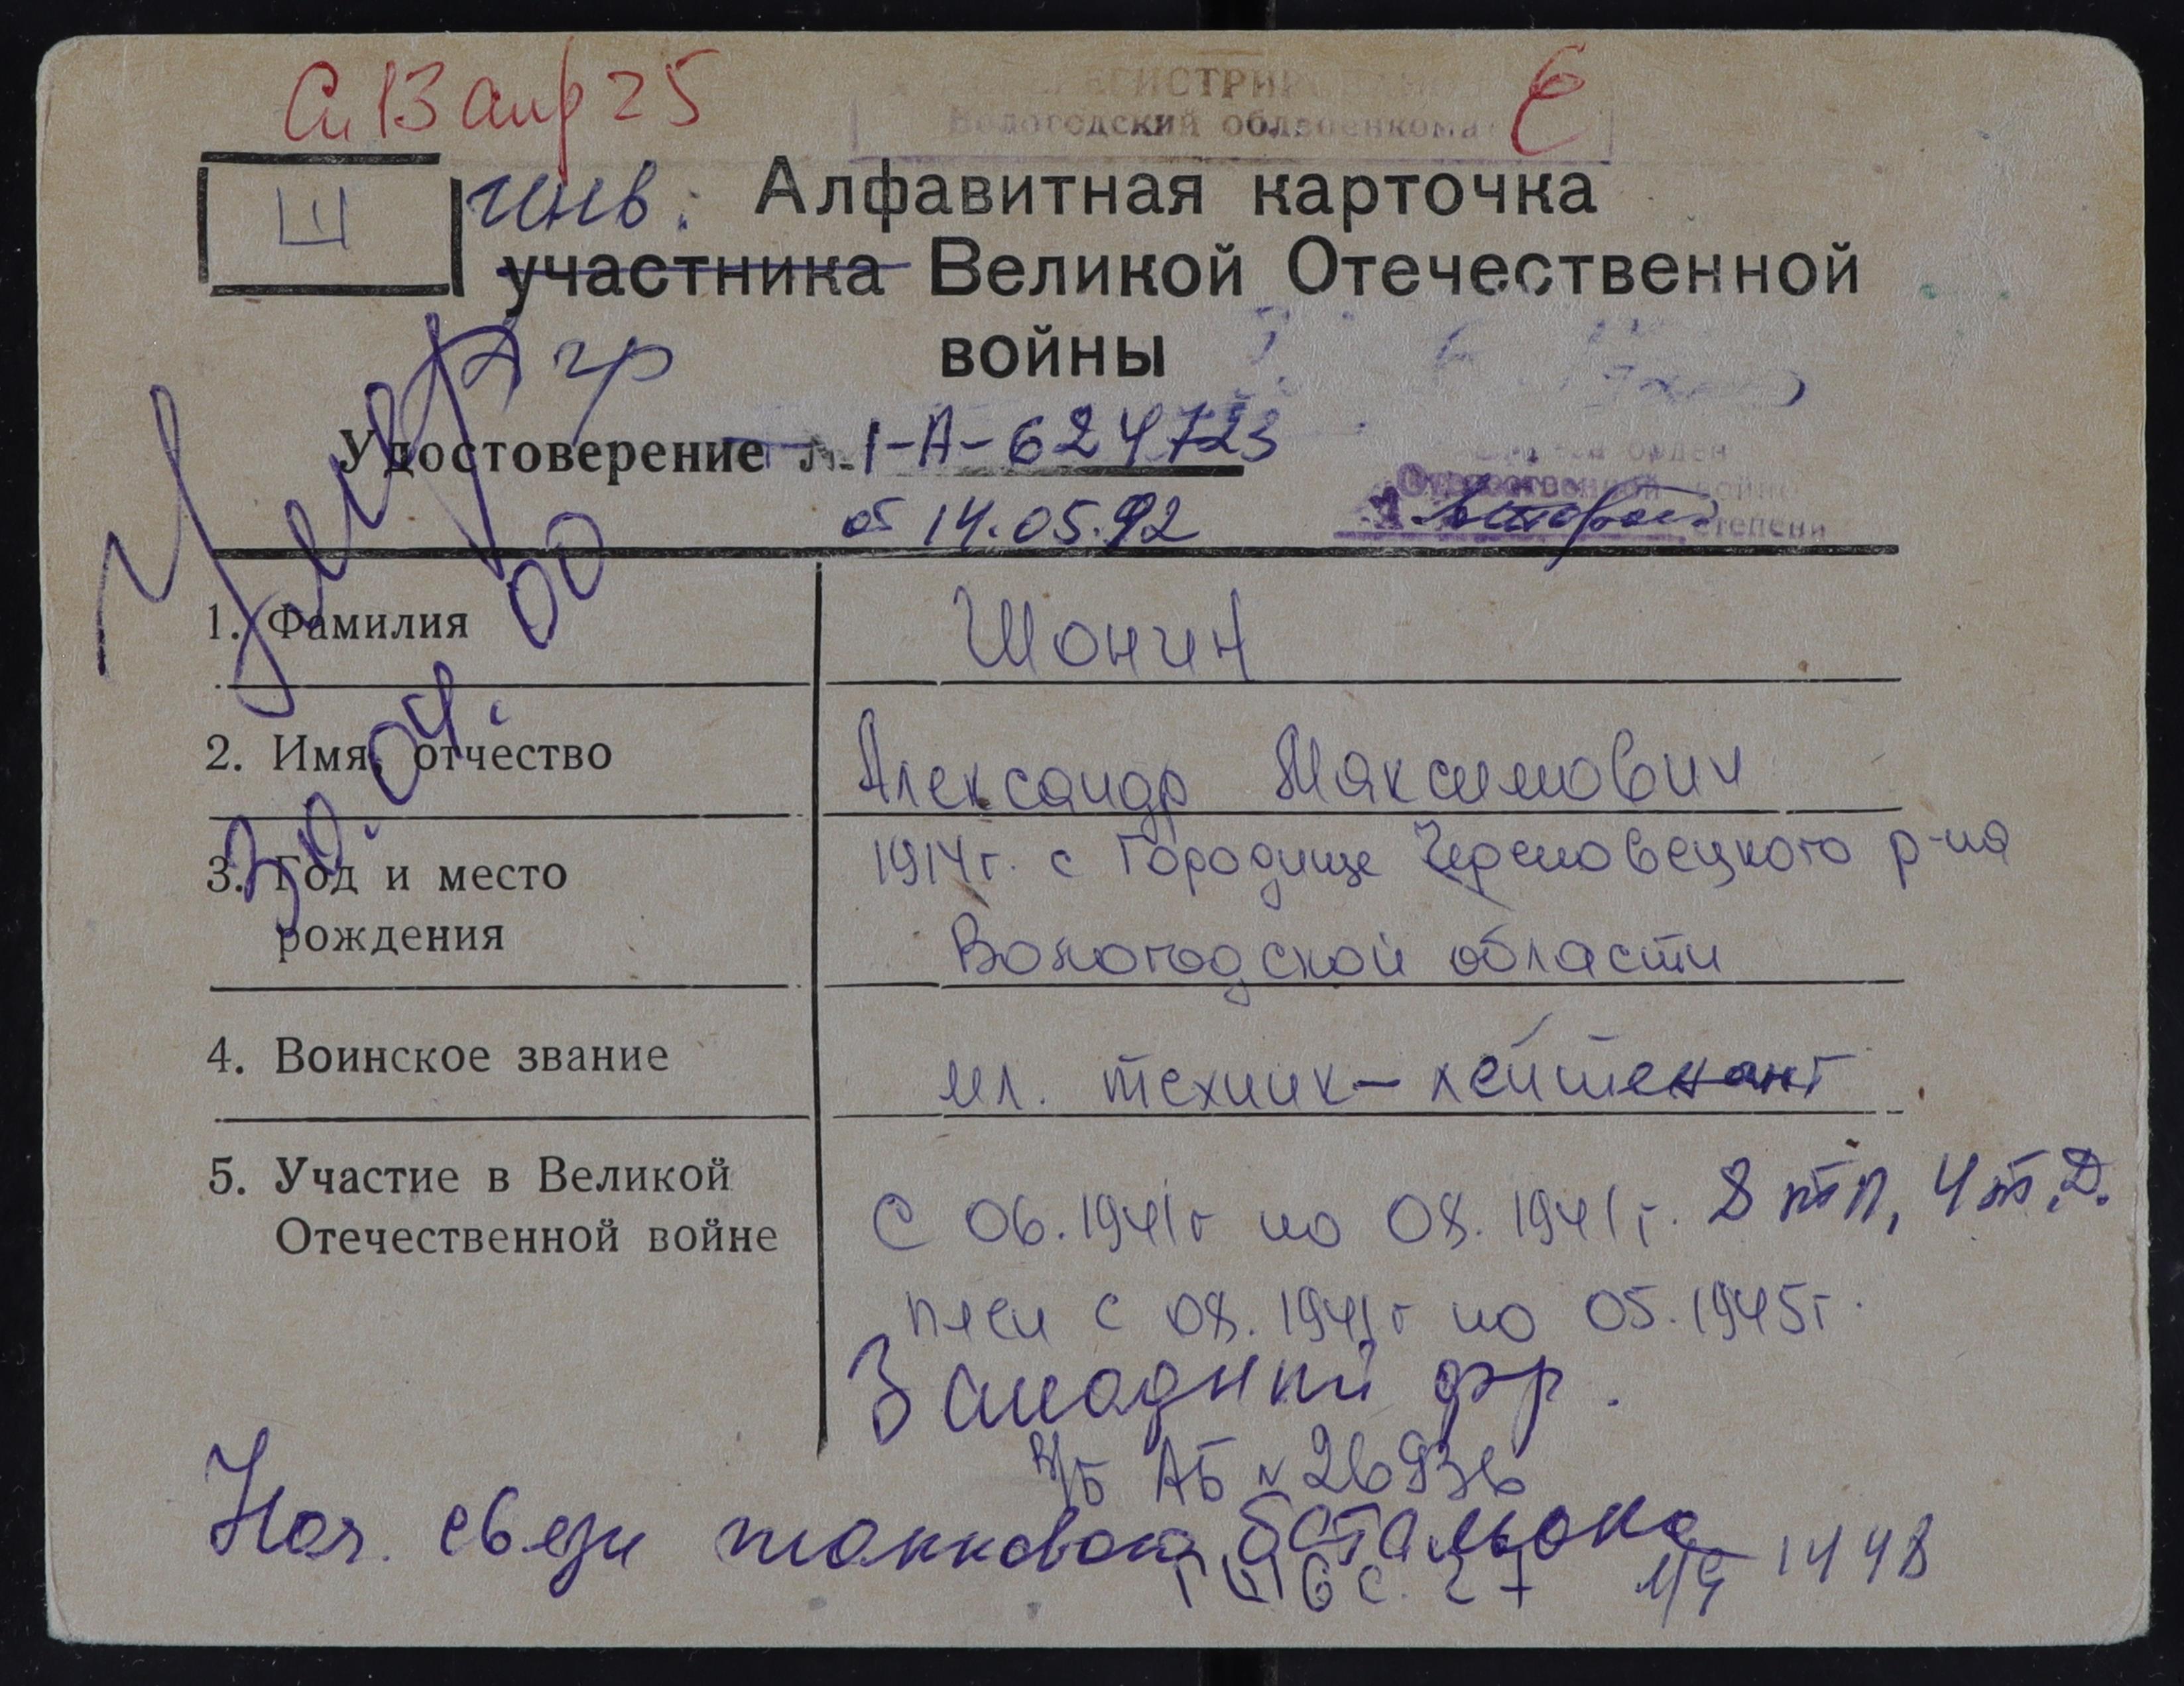 13 апр 25
Вологодский облвоенкомат
Ш
инв. Алфавитная карточка
участника Великой Отечественной
войны
2 гр
Удостоверение № 1-А-624723
от 14.05.92
орден
Отечественной войны
степени
Умер
30.04.00
1. Фамилия Шонин
2. Имя, отчество Александр Максимович
3. Год и место 1914г. с Городище Череповецкого р-на
рождения Вологодской области
4. Воинское звание мл. техник-лейтенант
5. Участие в Великой С 06.1941г по 08.1941г. 8 тп, 4 т.д.
Отечественной войне
плен с 08.1941г по 05.1945г.
Западный фр.
в/б АБ № 26936
Нач. связи танкового батальона
1448